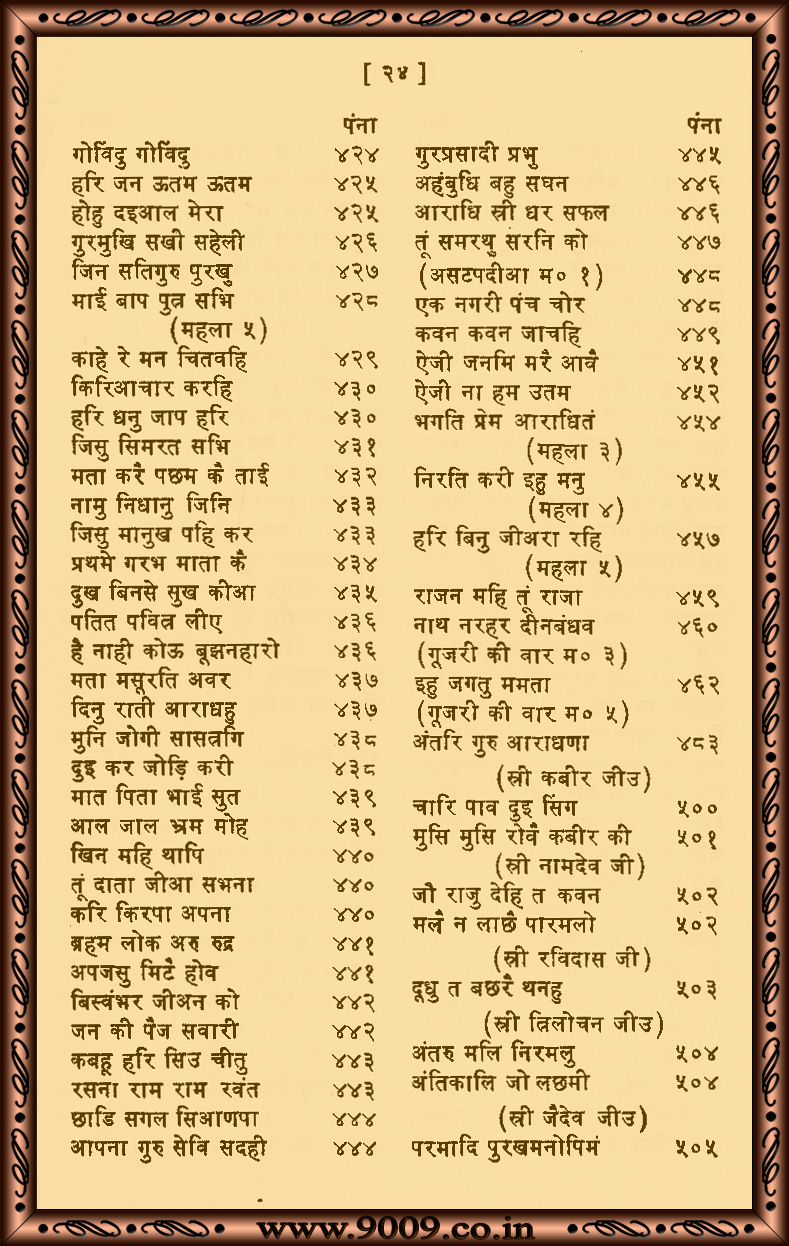 [ २४ ]
पंना
गोविंदु गोविंदु ४२४
हरि जन ऊतम ऊतम ४२५
होहु दइआल मेरा ४२५
गुरमुखि सखी सहेली ४२६
जिन सतिगुरु पुरखु ४२७
माई बाप पुत्र सभि ४२८
(महला ५)
काहे रे मन चितवहि ४२९
किरिआचार करहि ४३०
हरि धनु जाप हरि ४३०
जिसु सिमरत सभि ४३१
मता करै पछम कै ताई ४३२
नामु निधानु जिनि ४३३
जिसु मानुख पहि कर ४३३
प्रथमे गरभ माता कै ४३४
दुख बिनसे सुख कीआ ४३५
पतित पवित्र लीए ४३६
है नाही कोऊ बूझनहारो ४३६
मता मसूरति अवर ४३७
दिनु राती आराधहु ४३७
मुनि जोगी सासत्रगि ४३८
दुइ कर जोड़ि करी ४३८
मात पिता भाई सुत ४३९
आल जाल भ्रम मोह ४३९
खिन महि थापि ४४०
तूं दाता जीआ सभना ४४०
करि किरपा अपना ४४०
ब्रहम लोक अरु रुद्र ४४१
अपजसु मिटै होव ४४१
बिस्वंभर जीअन को ४४२
जन की पैज सवारी ४४२
कबहू हरि सिउ चीतु ४४३
रसना राम राम रवंत ४४३
छाडि सगल सिआणपा ४४४
आपना गुरु सेवि सदही ४४४
पंना
गुरप्रसादी प्रभु ४४५
अहंबुधि बहु सघन ४४६
आराधि स्री धर सफल ४४६
तूं समरथु सरनि को ४४७
(असटपदीआ म० १) ४४८
एक नगरी पंच चोर ४४८
कवन कवन जाचहि ४४९
ऐजी जनमि मरै आवै ४५१
ऐजी ना हम उतम ४५२
भगति प्रेम आराधितं ४५४
(महला ३)
निरति करी इहु मनु ४५५
(महला ४)
हरि बिनु जीअरा रहि ४५७
(महला ५)
राजन महि तूं राजा ४५९
नाथ नरहर दीनबंधव ४६०
(गूजरी की वार म० ३)
इहु जगतु ममता ४६२
(गूजरी की वार म० ५)
अंतरि गुरु आराधणा ४८३
(स्री कबीर जीउ)
चारि पाव दुइ सिंग ५००
मुसि मुसि रोवै कबीर की ५०१
(स्री नामदेव जी)
जौ राजु देहि त कवन ५०२
मलै न लाछै पारमलो ५०२
(स्री रविदास जी)
दूधु त बछरै थनहु ५०३
(स्री त्रिलोचन जीउ)
अंतरु मलि निरमलु ५०४
अंतिकालि जो लछमी ५०४
(स्री जैदेव जीउ)
परमादि पुरखमनोपिमं ५०५
www.9009.co.in